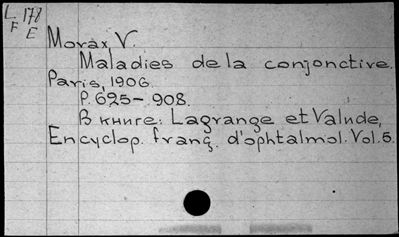 L 178
F E
Morax V.
Maladies de la conjonctive.
Paris, 1906.
P. 625-908.
В книге: Lagrange et Valude,
Encyclop. franç. d'ophtalmol. Vol. 5.